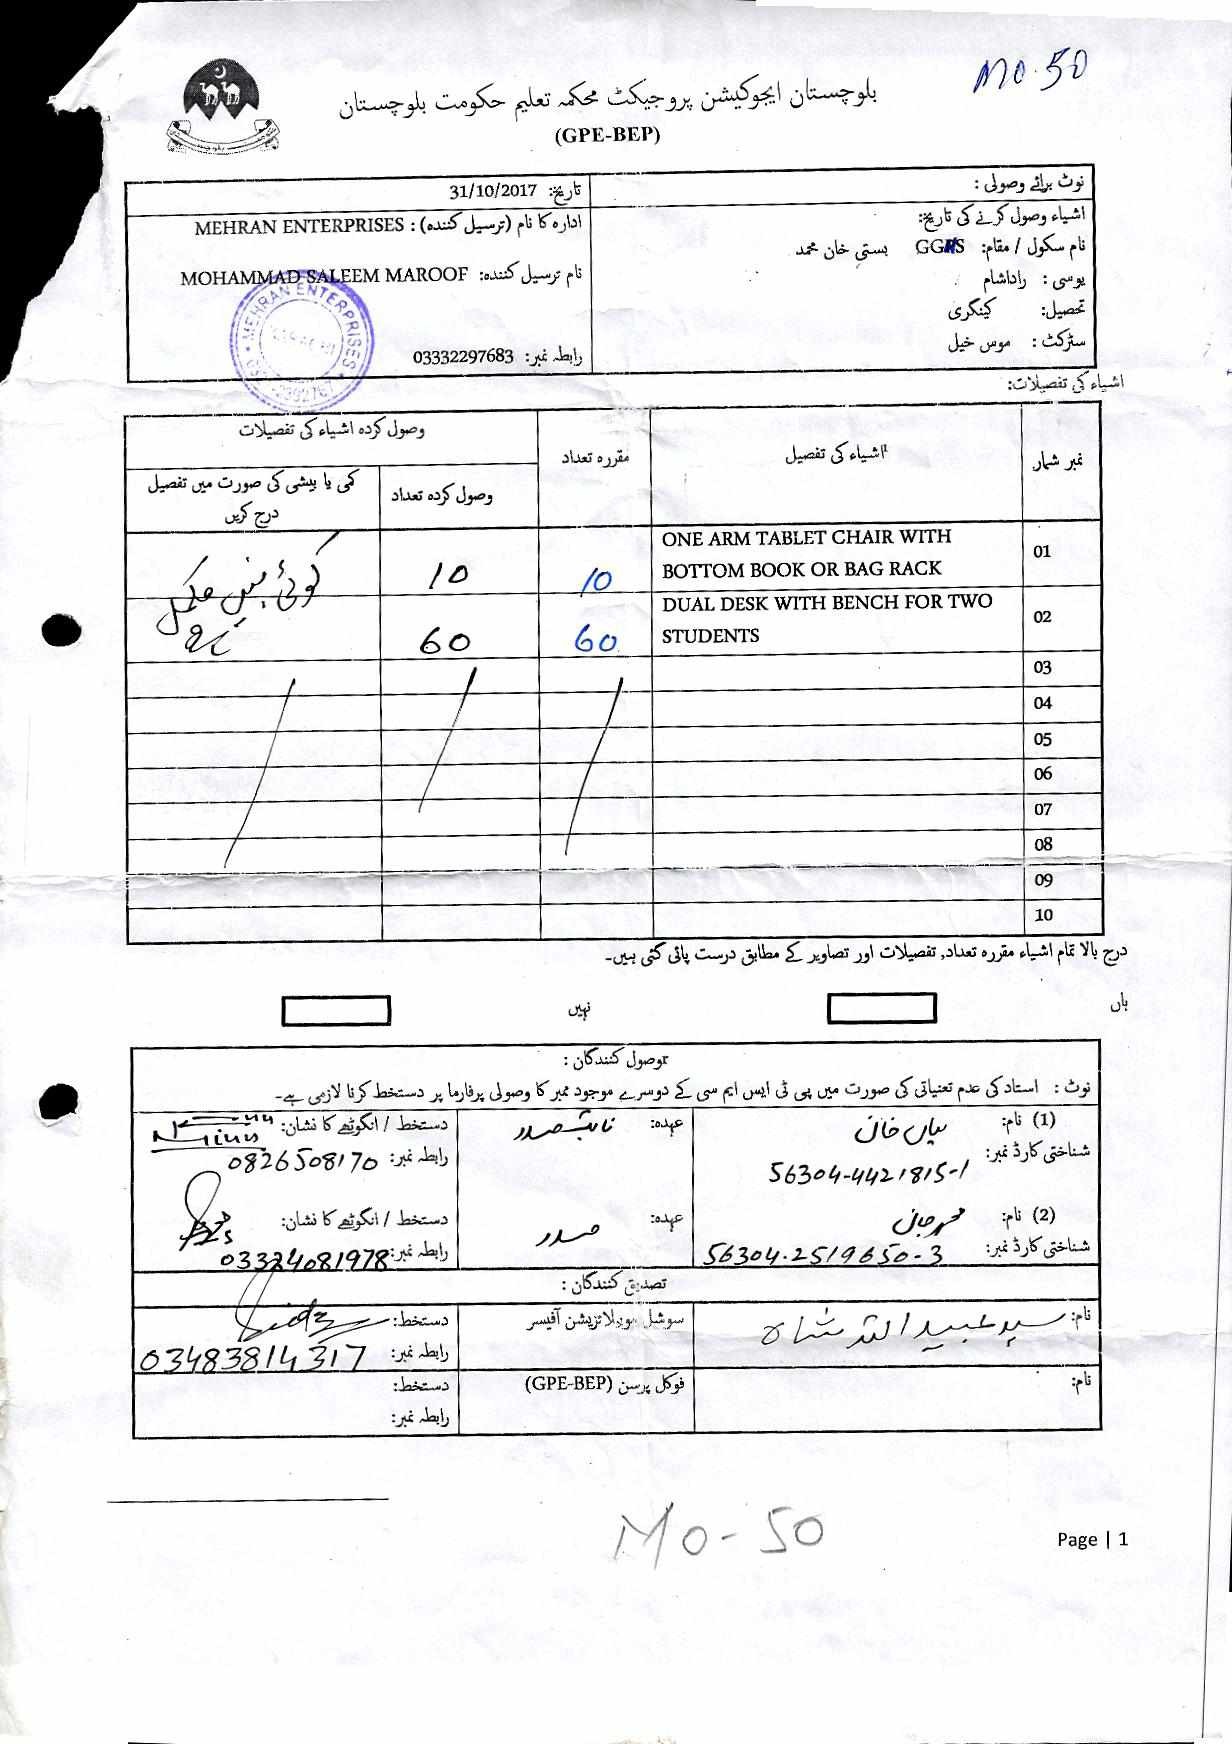 MO-50
بلوچستان ایجوکیشن پروجیکٹ محکمہ تعلیم حکومت بلوچستان
(GPE-BEP)
نوٹ برائے وصولی :
تاریخ: 31/10/2017
اشیاء وصول کرنے کی تاریخ:
نام سکول / مقام: GG S بستی خان محمد
یوسی : راداشام
تحصیل: کینگری
سٹرکٹ : موسی خیل
ادارہ کا نام (ترسیل کنندہ) : MEHRAN ENTERPRISES
نام ترسیل کنندہ: MOHAMMAD SALEEM MAROOF
رابطہ نمبر: 03332297683
MEHRAN ENTERPRISES
اشیاء کی تفصیلات:
نمبر شمار
اشیاء کی تفصیل
مقررہ تعداد
وصول کردہ اشیاء کی تفصیلات
وصول کردہ تعداد
کمی یا بیشی کی صورت میں تفصیل درج کریں
01 ONE ARM TABLET CHAIR WITH BOTTOM BOOK OR BAG RACK 10 10
کوئی نہیں مکمل
02 DUAL DESK WITH BENCH FOR TWO STUDENTS 60 60
03
04
05
06
07
08
09
10
درج بالا تمام اشیاء مقررہ تعداد, تفصیلات اور تصاویر کے مطابق درست پائی گئی ہیں۔
ہاں
نہیں
وصول کنندگان :
نوٹ : استاد کی عدم تعنیاتی کی صورت میں پی ٹی ایس ایم سی کے دوسرے موجود ممبر کا وصولی پرفارما پر دستخط کرنا لازمی ہے۔
(1) نام: میاں خان
عہدہ: نائب صدر
دستخط / انگوٹھے کا نشان:
شناختی کارڈ نمبر: 56304-4421815-1
رابطہ نمبر: 0826508170
(2) نام: محمد جان
عہدہ: صدر
دستخط / انگوٹھے کا نشان:
شناختی کارڈ نمبر: 56304-2519650-3
رابطہ نمبر: 03324081978
تصدیق کنندگان :
نام: سید عبید اللہ شاہ
سوشل موبلائزیشن آفیسر
دستخط:
رابطہ نمبر: 03483814317
نام:
فوکل پرسن (GPE-BEP)
دستخط:
رابطہ نمبر:
MO-50
Page | 1